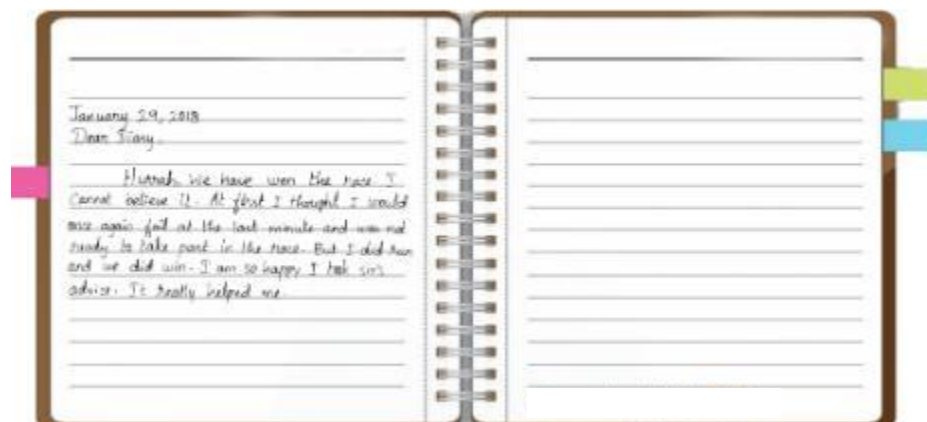 January 29, 2018
Dear Diary,
Hurrah, We have won the race I
cannot believe it. At first I thought I would
once again fail at the last minute and was not
ready to take part in the race. But I did run
and we did win. I am so happy I took sir's
advice. It really helped me.